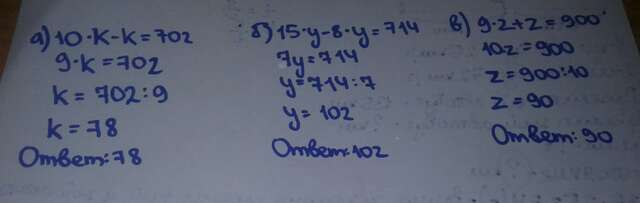 а) 10·k-k=702
9·k=702
k=702:9
k=78
Ответ:78
б) 15·y-8·y=714
7y=714
y=714:7
y=102
Ответ:102
в) 9·z+z=900
10z=900
z=900:10
z=90
Ответ:90